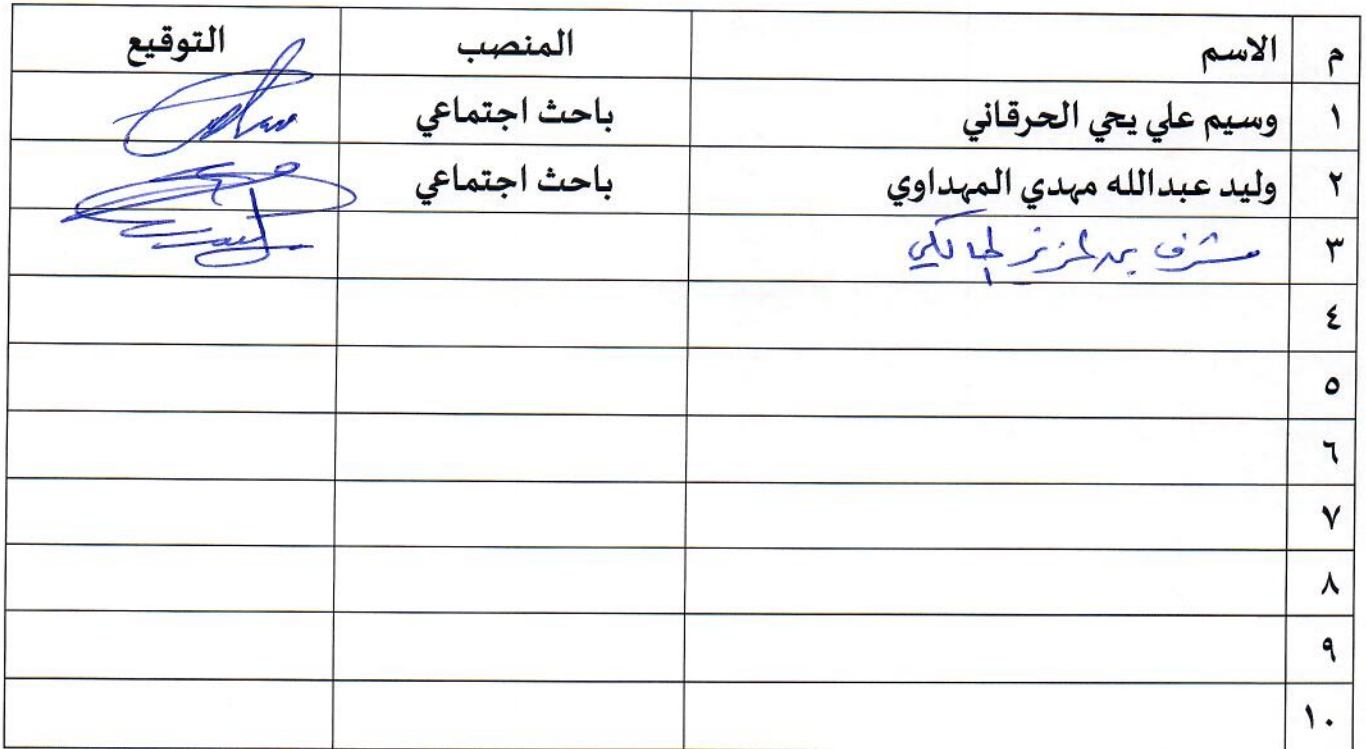 م الاسم المنصب التوقيع
١ وسيم علي يحي الحرقاني باحث اجتماعي
٢ وليد عبدالله مهدي المهداوي باحث اجتماعي
٣ مشرف بن
٤
٥
٦
٧
٨
٩
١٠